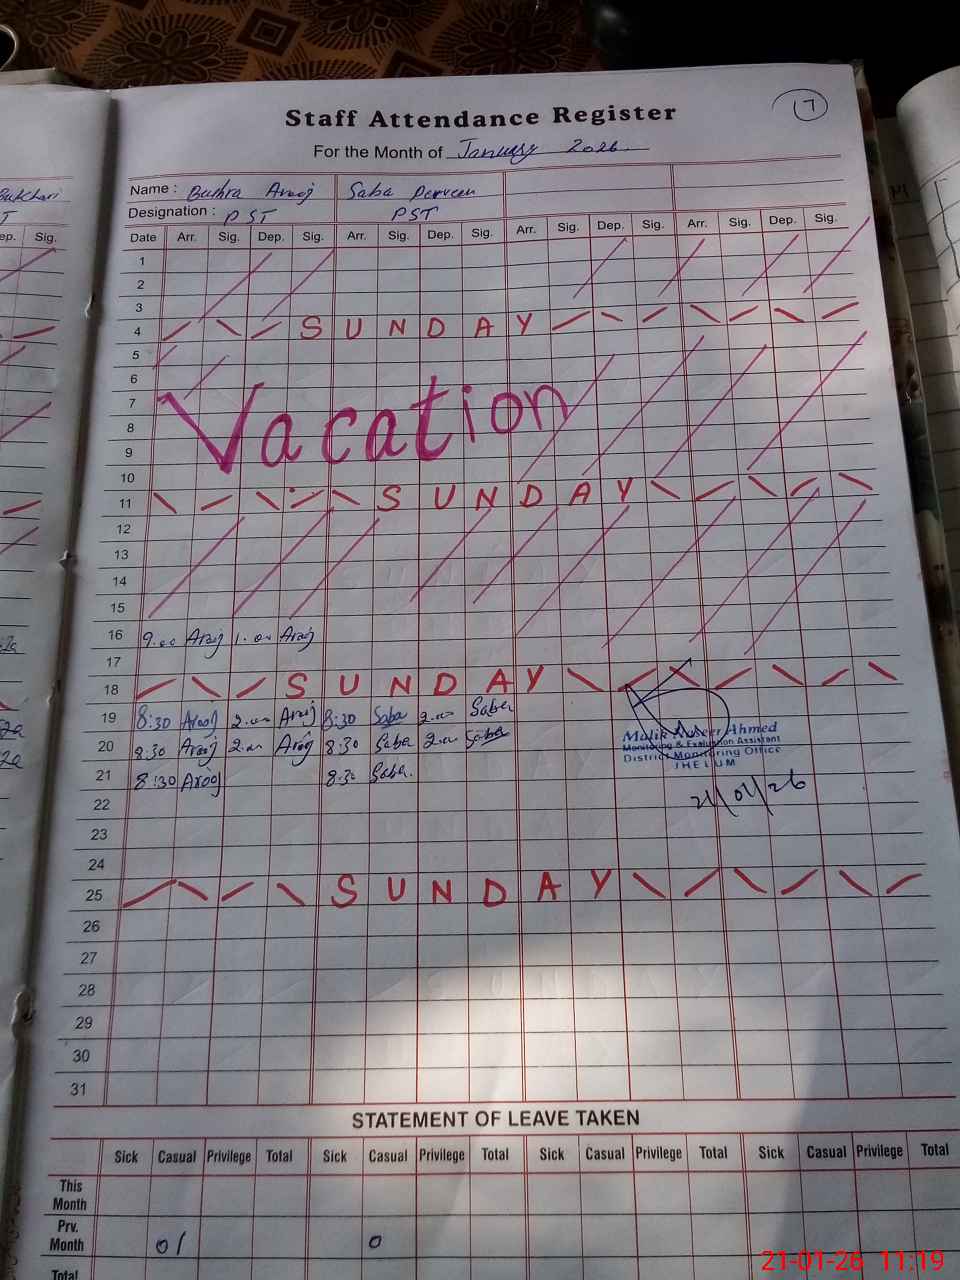 17
Staff Attendance Register
For the Month of January 2026
Name : Bushra Arooj Saba Perveen
Designation : PST PST
Date Arr. Sig. Dep. Sig. Arr. Sig. Dep. Sig. Arr. Sig. Dep. Sig. Arr. Sig. Dep. Sig.
ep. Sig.
1
2
3
4 SUNDAY
5
6
7 Vacation
8
9
10
11 SUNDAY
12
13
14
15
16 9.00 Arooj 1.00 Arooj
17
18 SUNDAY
19 8:30 Arooj 2.00 Arooj 8:30 Saba 2.00 Saba
20 8:30 Arooj 2.00 Arooj 8:30 Saba 2.00 Saba
21 8:30 Arooj 8:30 Saba.
Malik Ahmed
Monitoring & Evaluation Assistant
District Monitoring Office
JHELUM
21/01/26
22
23
24
25 SUNDAY
26
27
28
29
30
31
STATEMENT OF LEAVE TAKEN
Sick Casual Privilege Total Sick Casual Privilege Total Sick Casual Privilege Total Sick Casual Privilege Total
This Month
Prv. Month 01 0
Total
21-01-26 11:19